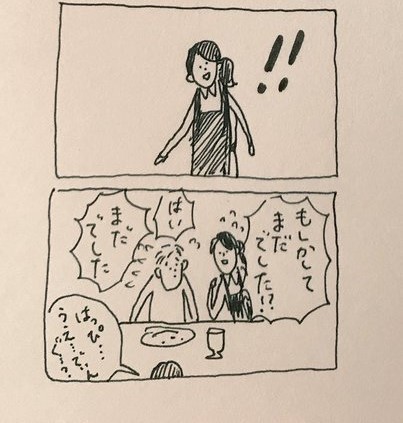 !!
もしかして
まだ
でした!?
はい
まだ
でした
はっぴ…
うぇ…でぃん
ぐ…っ